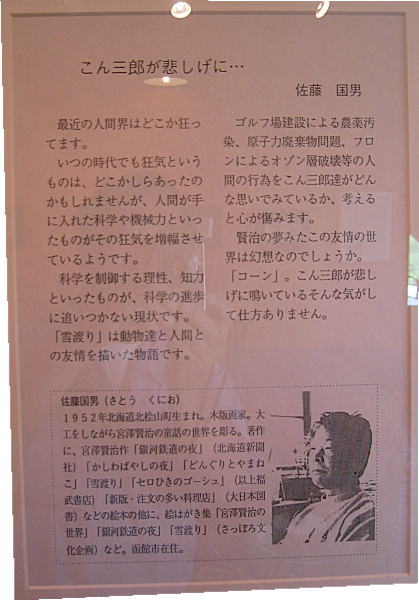 こん三郎が悲しげに…
佐藤　国男
最近の人間界はどこか狂っ
てます。
いつの時代でも狂気という
ものは、どこかしらあったの
かもしれませんが、人間が手
に入れた科学や機械力といっ
たものがその狂気を増幅させ
ているようです。
科学を制御する理性、知力
といったものが、科学の進歩
に追いつかない現状です。
「雪渡り」は動物達と人間と
の友情を描いた物語です。
ゴルフ場建設による農薬汚
染、原子力廃棄物問題、フロ
ンによるオゾン層破壊等の人
間の行為をこん三郎達がどん
な思いでみているか、考える
と心が傷みます。
賢治の夢みたこの友情の世
界は幻想なのでしょうか。
「コーン」。こん三郎が悲し
げに鳴いているそんな気がし
て仕方ありません。
佐藤国男（さとう　くにお）
1952年北海道北桧山町生まれ。木版画家。大
工をしながら宮澤賢治の童話の世界を彫る。著作
に、宮澤賢治作「銀河鉄道の夜」（北海道新聞
社）「かしわばやしの夜」「どんぐりとやまね
こ」「雪渡り」「セロひきのゴーシュ」（以上福
武書店）「新版・注文の多い料理店」（大日本図
書）などの絵本の他に、絵はがき集「宮澤賢治の
世界」「銀河鉄道の夜」「雪渡り」（さっぽろ文
化企画）など。函館市在住。